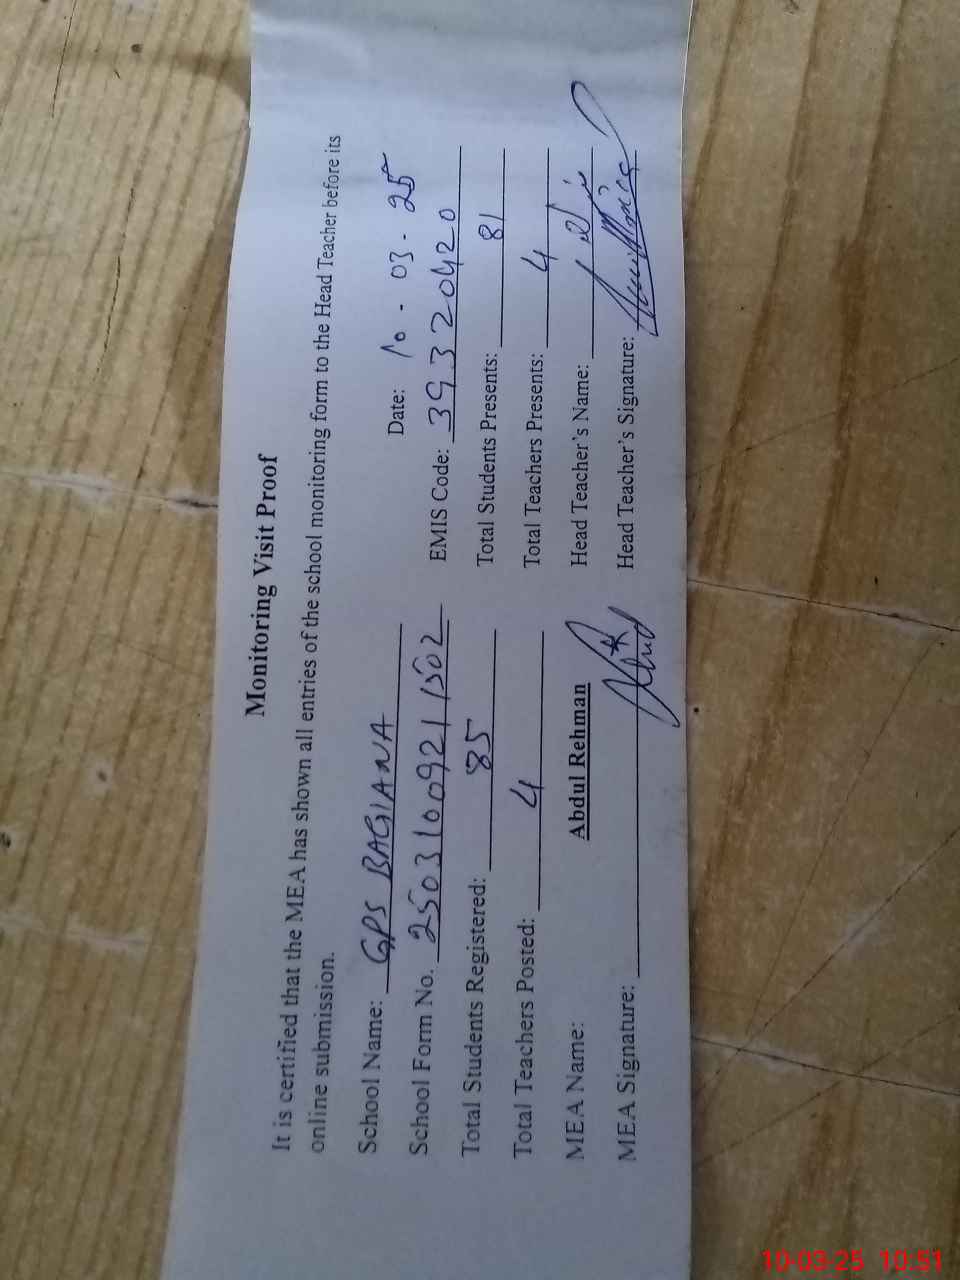 Monitoring Visit Proof
It is certified that the MEA has shown all entries of the school monitoring form to the Head Teacher before its
online submission.
School Name: GPS BAGIANA Date: 10 - 03 - 25
School Form No. 25031009211502 EMIS Code: 39320420
Total Students Registered: 85 Total Students Presents: 81
Total Teachers Posted: 4 Total Teachers Presents: 4
MEA Name: Abdul Rehman Head Teacher's Name:
MEA Signature: Head Teacher's Signature:
10-03-25 10:51